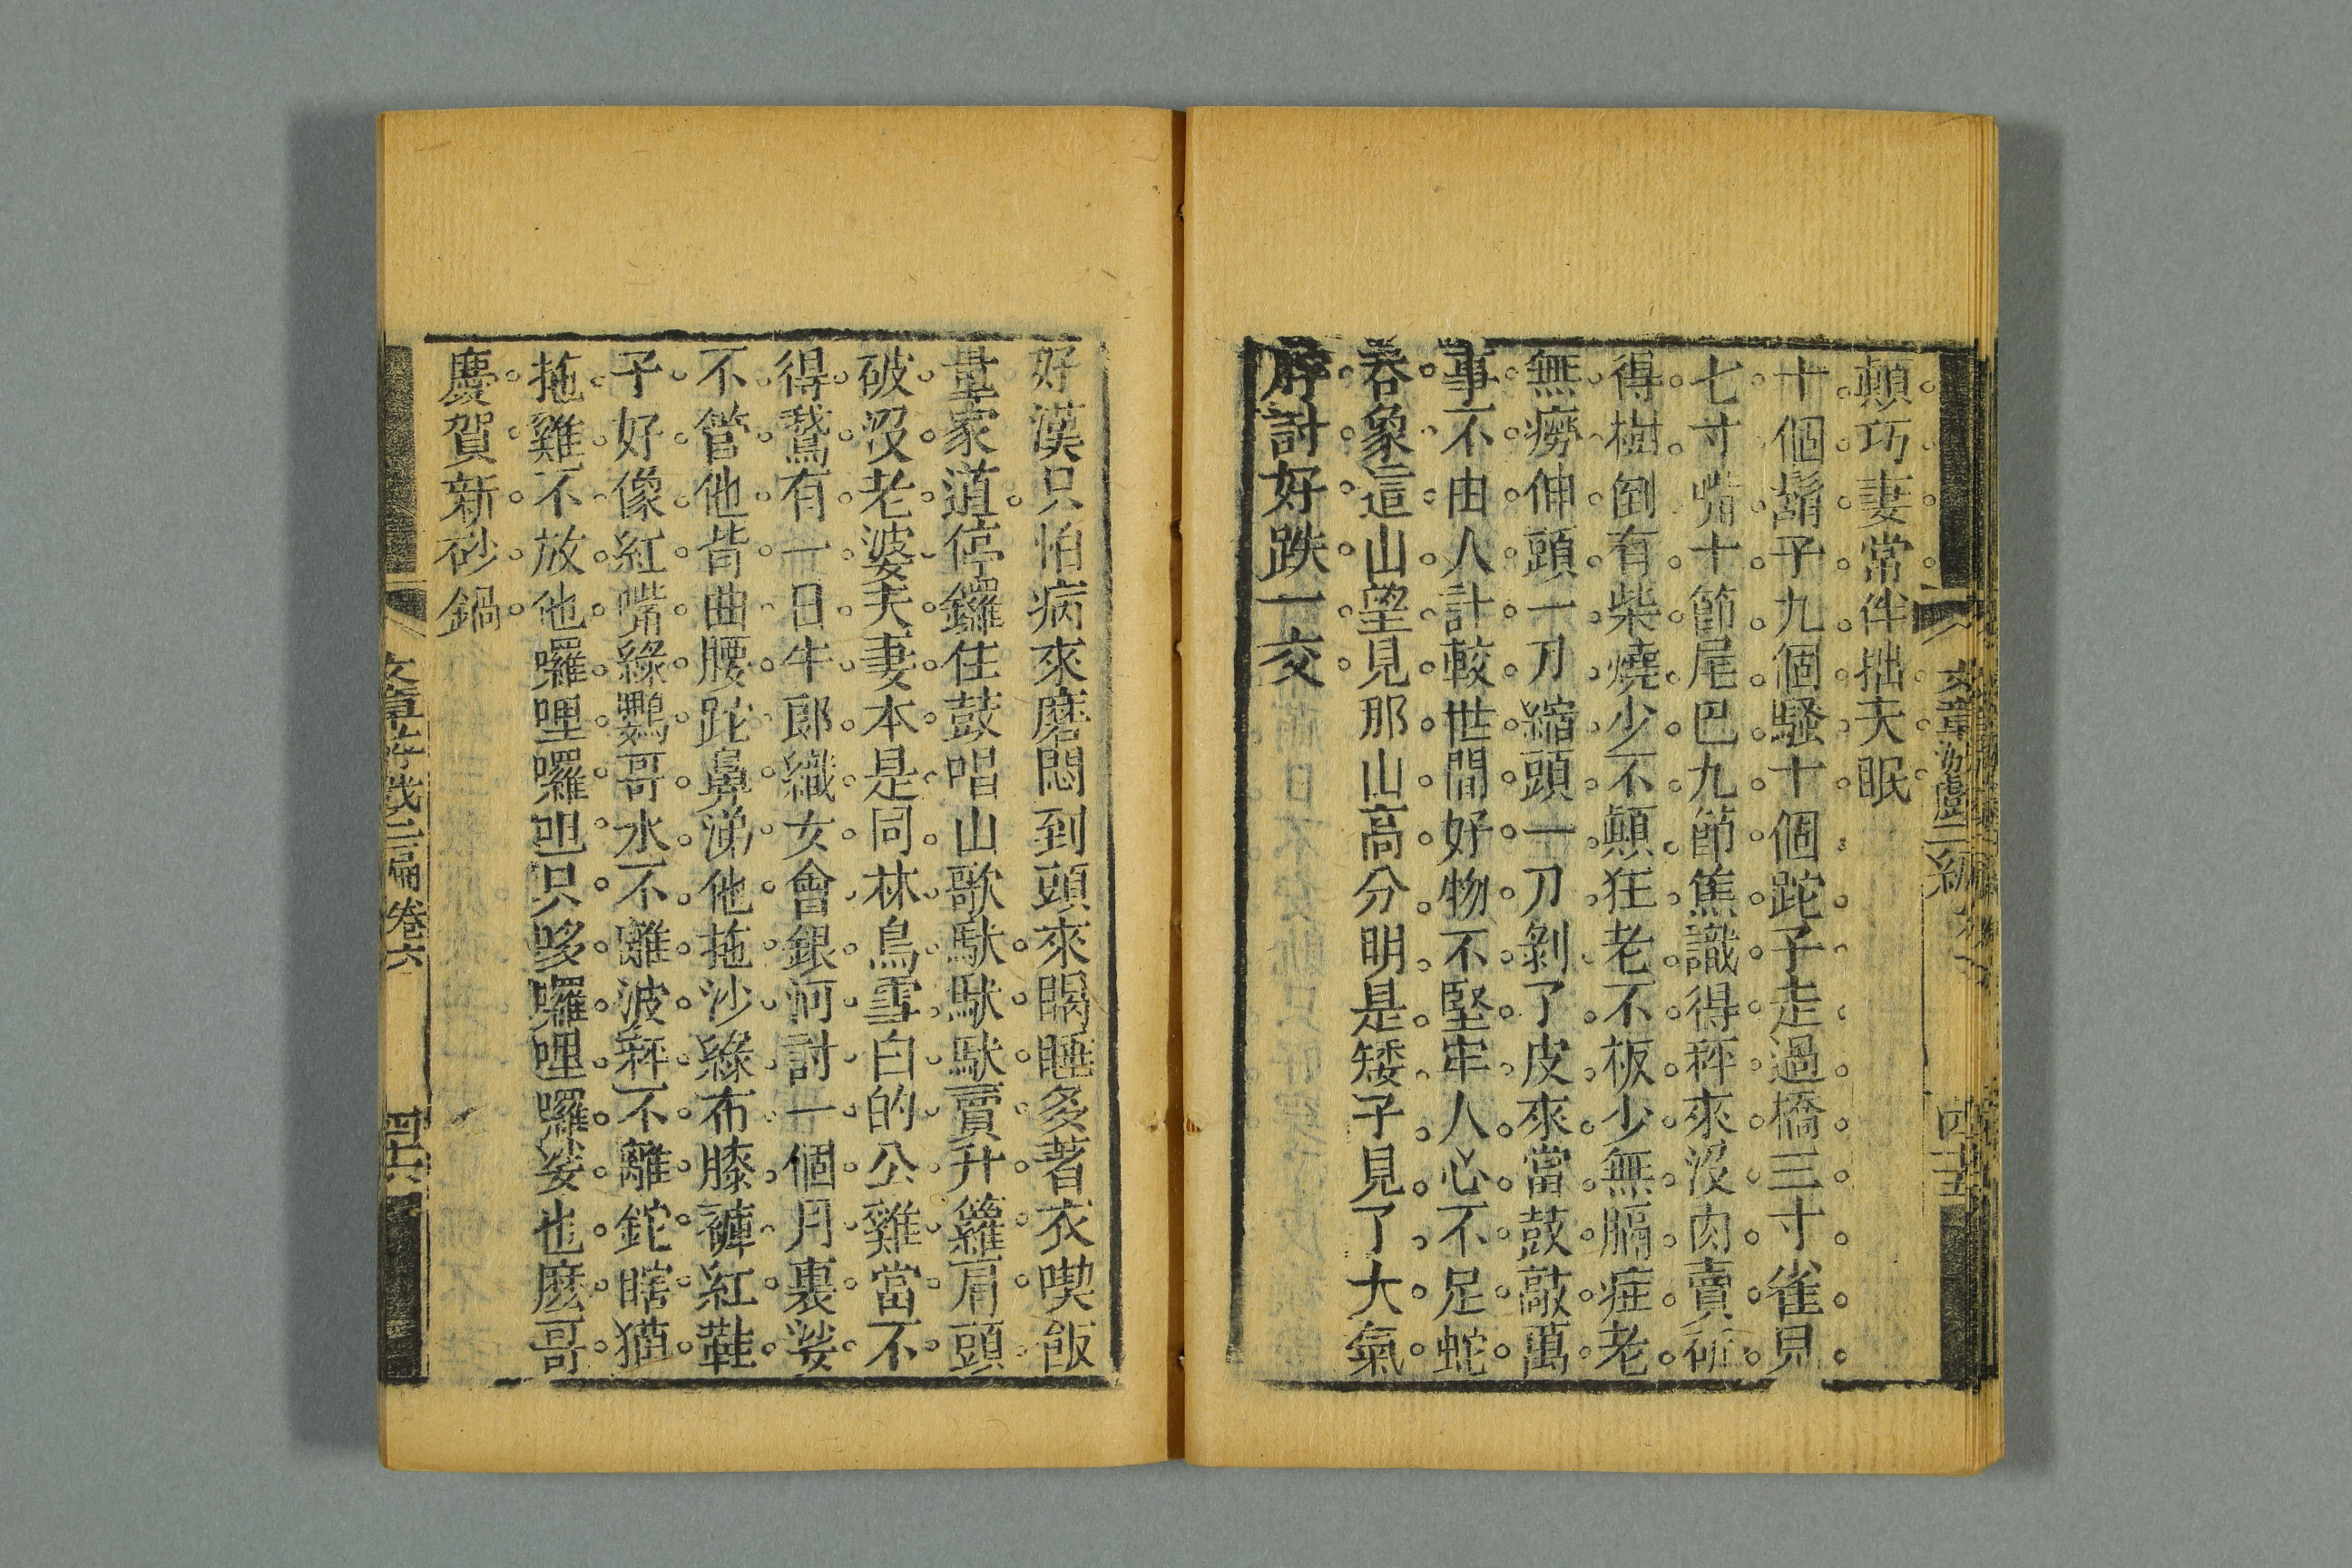 顛巧妻常伴拙夫眠
十個鬍子九個騷十個跎子走過橋三寸雀見
七寸嘴十節尾巴九節焦識得秤來沒肉賣砍
得樹倒有柴燒少不顛狂老不板少無膈症老
無癆伸頭一刀縮頭一刀剝了皮來當鼓敲萬
事不由人計較世間好物不堅牢人心不足蛇
吞象這山望見那山高分明是矮子見了大氣
脬討好跌一交
好漢只怕病來磨悶到頭來瞌睡多著衣喫飯
量家道停鑼住鼓唱山歌馱馱馱賣升籮肩頭
破沒老婆夫妻本是同林鳥雪白的公雞當不
得鵞有一日牛郎織女會銀河討一個月裏娑
不管他背曲腰跎鼻涕他拖沙綠布膝褲紅鞋
子好像紅嘴綠鸚哥水不離波秤不離鉈瞎猫
拖雞不放他囉哩囉唕只哆囉哩囉娑也麼哥
慶賀新砂鍋
文章游戲二編卷六
四十六